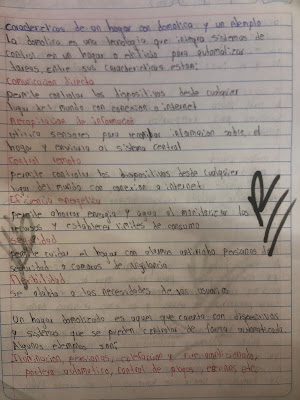 Caracteristicas de un hogar con domotica y un ejemplo
la domotica es una tecnologia que integra sistemas de
control en un hogar o edificio para automatizar
tareas, entre sus caracteristicas estan:
Comunicacion directa
permite controlar los dispositivos desde cualquier
lugar del mundo con conexion a internet
Recopilacion de informacion
utiliza sensores para recopilar informacion sobre el
hogar y enviarla al sistema central
Control remoto
permite controlar los dispositivos desde cualquier
lugar del mundo con conexion a internet
Eficiencia energetica
permite ahorrar energia y agua al monitorizar los
recursos y establecer limites de consumo
Seguridad
Permite cuidar el hogar con alarmas persianas de
seguridad o camaras de vigilancia
Flexibilidad
Se adapta a las necesidades de los usuarios
Un hogar domotizado es aquel que cuenta con dispositivos
y sistemas que se pueden controlar de forma automatizada.
Algunos ejemplos son:
Iluminacion, persianas, calefaccion y
portero automatico, control de etc.